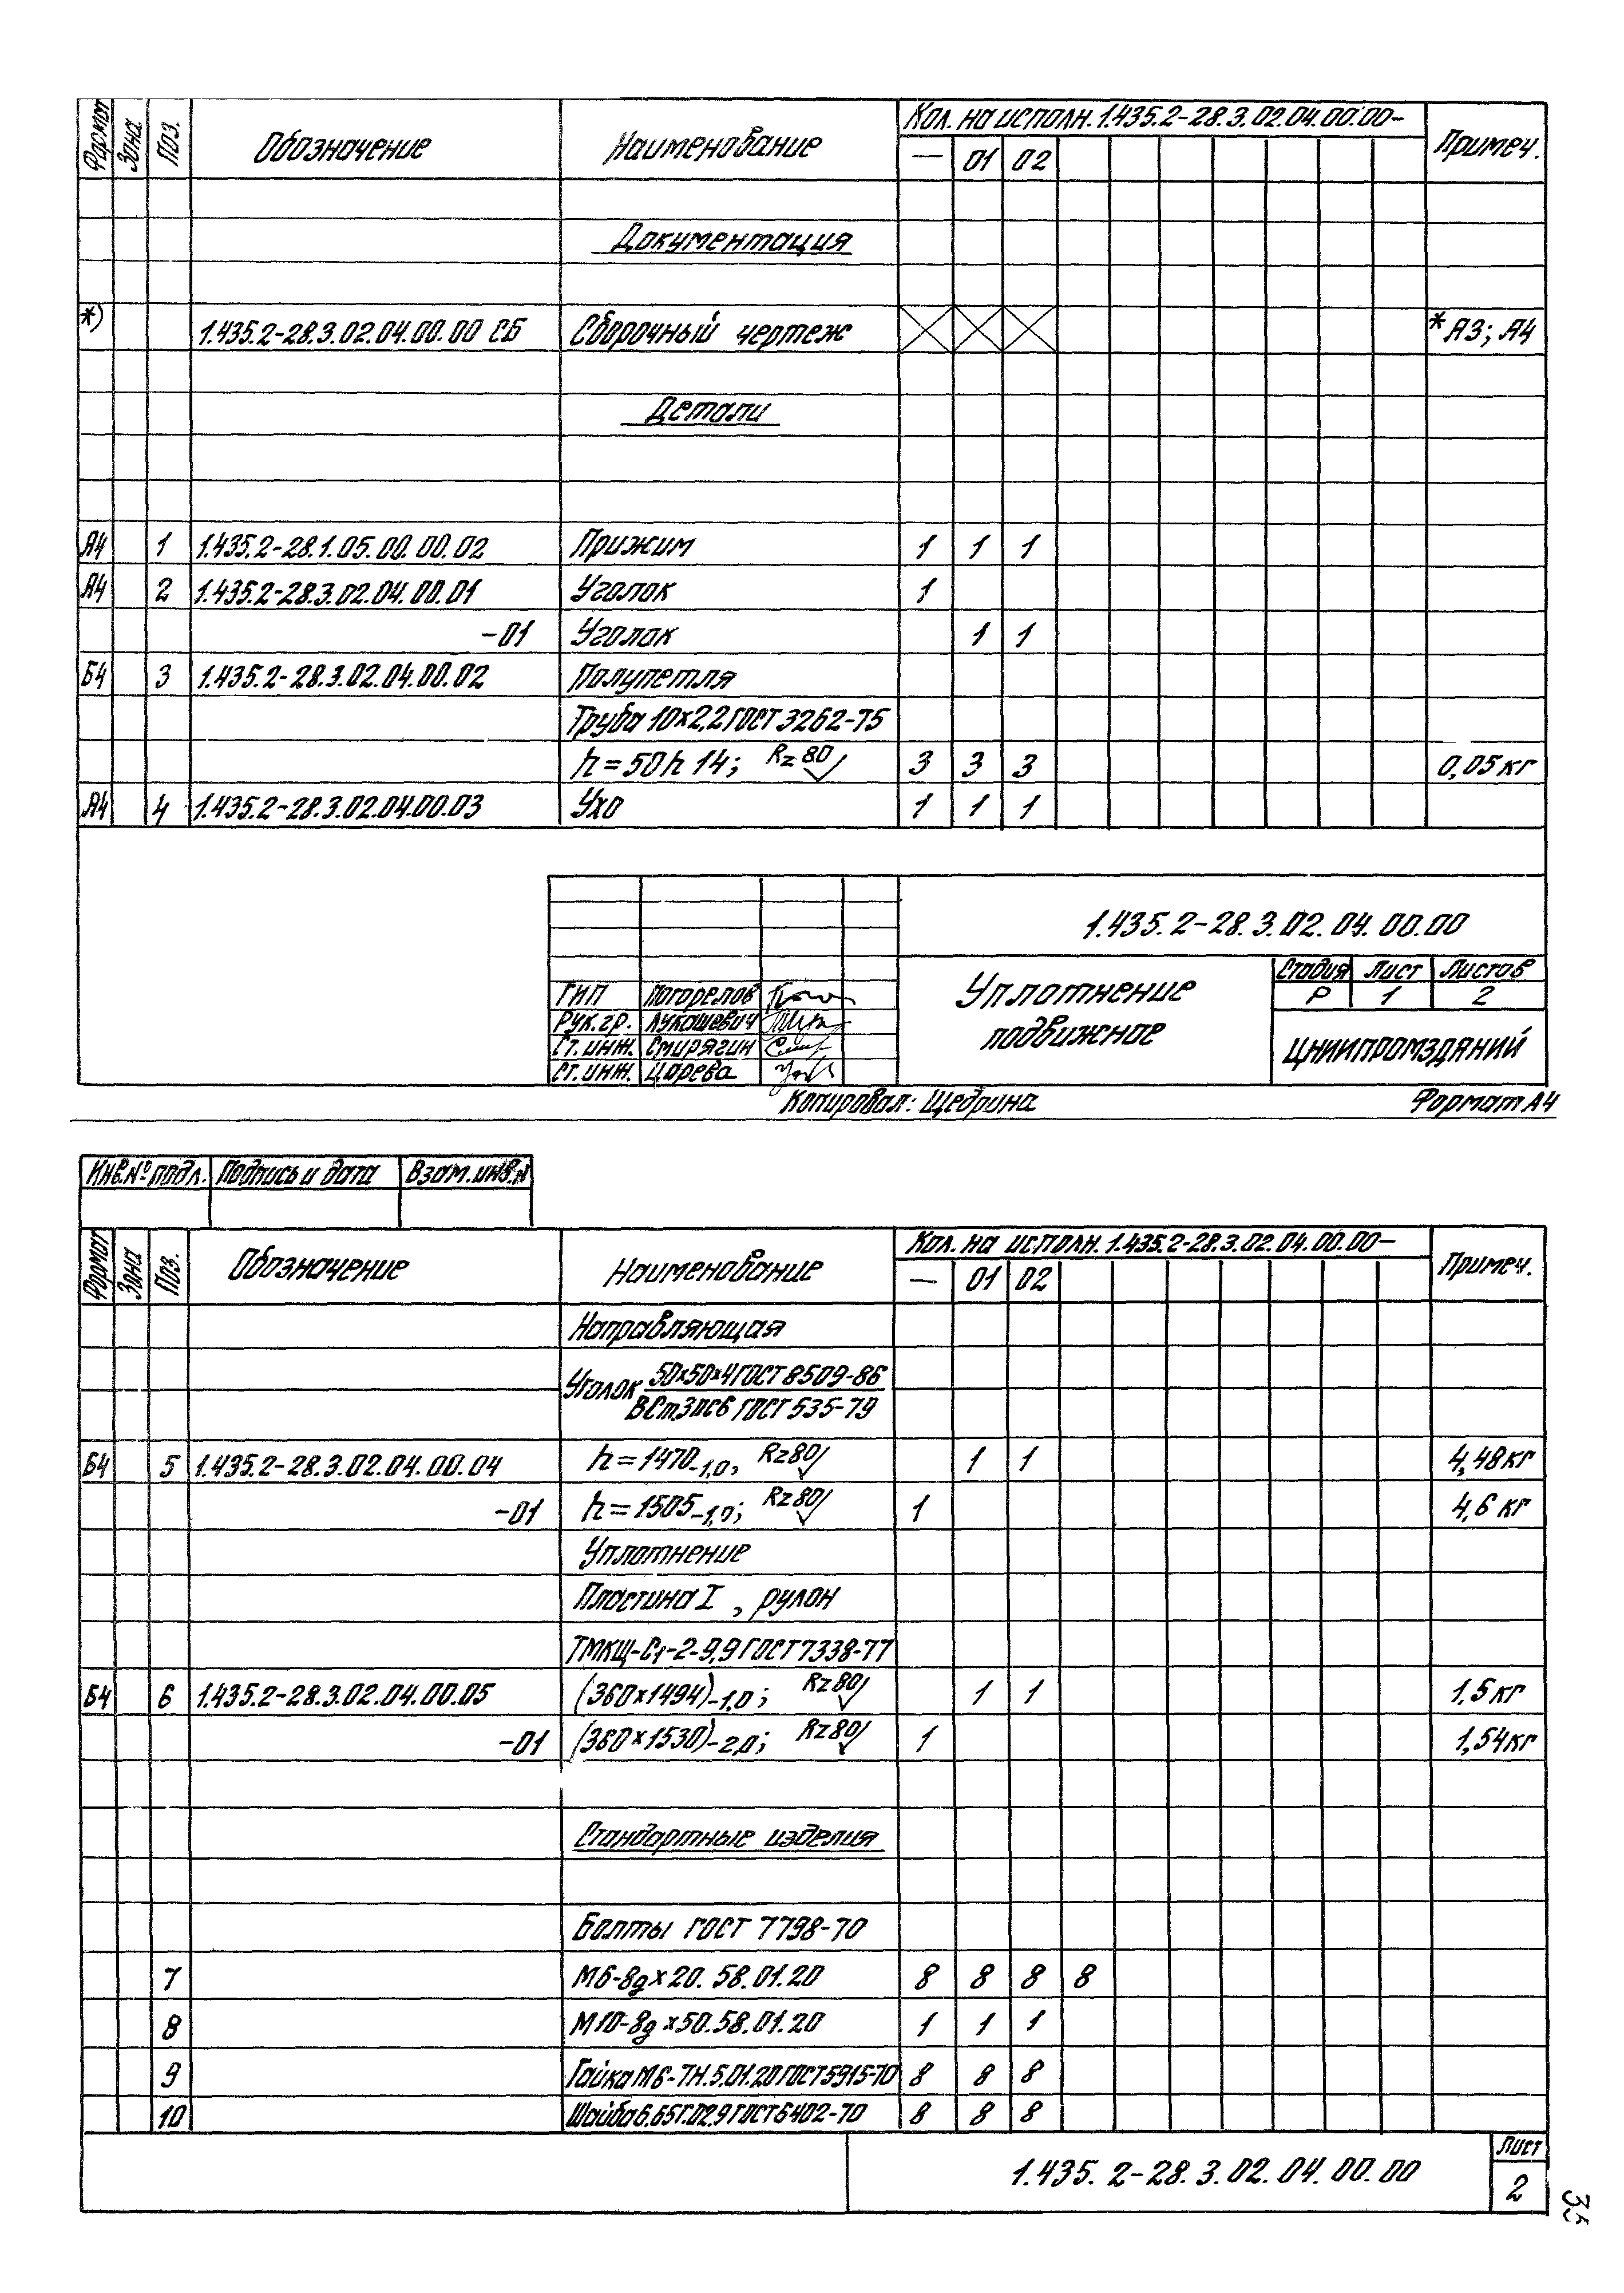 Формат Зона Поз. Обозначение Наименование Кол. на исполн. 1.435.2-28.3.02.04.00.00- Примеч.
— 01 02
Документация
*) 1.435.2-28.3.02.04.00.00 СБ Сборочный чертеж *А3; А4
Детали
А4 1 1.435.2-28.1.05.00.00.02 Прижим 1 1 1
А4 2 1.435.2-28.3.02.04.00.01 Уголок 1
-01 Уголок 1 1
Б4 3 1.435.2-28.3.02.04.00.02 Полупетля
Труба 10х2,2 ГОСТ 3262-75
h=50h14; Rz80 3 3 3 0,05кг
А4 4 1.435.2-28.3.02.04.00.03 Ухо 1 1 1
1.435.2-28.3.02.04.00.00
Уплотнение подвижное
Стадия Лист Листов
Р 1 2
ГИП Погорелов
Рук.гр. Лукашевич
Ст.инж. Смирягин
Ст.инж. Царева
ЦНИИПРОМЗДАНИЙ
Копировал: Щедрина Формат А4
Инв.№ подл. Подпись и дата Взам.инв.№
Формат Зона Поз. Обозначение Наименование Кол. на исполн. 1.435.2-28.3.02.04.00.00- Примеч.
— 01 02
Направляющая
Уголок 50х50х4 ГОСТ 8509-86
ВСт3пс6 ГОСТ 535-79
Б4 5 1.435.2-28.3.02.04.00.04 h=1470-1,0, Rz80 1 1 4,48кг
-01 h=1505-1,0; Rz80 1 4,6 кг
Уплотнение
Пластина I, рулон
ТМКЩ-С1-2-9,9 ГОСТ 7338-77
Б4 6 1.435.2-28.3.02.04.00.05 (360х1494)-1,0; Rz80 1 1 1,5кг
-01 (360х1530)-2,0; Rz80 1 1,54кг
Стандартные изделия
Болты ГОСТ 7798-70
7 М6-8gх20.58.01.20 8 8 8 8
8 М10-8gх50.58.01.20 1 1 1
9 Гайка М6-7Н.5.01.20 ГОСТ 5915-70 8 8 8
10 Шайба 6.65Г.02.9 ГОСТ 6402-70 8 8 8
1.435.2-28.3.02.04.00.00 Лист
2